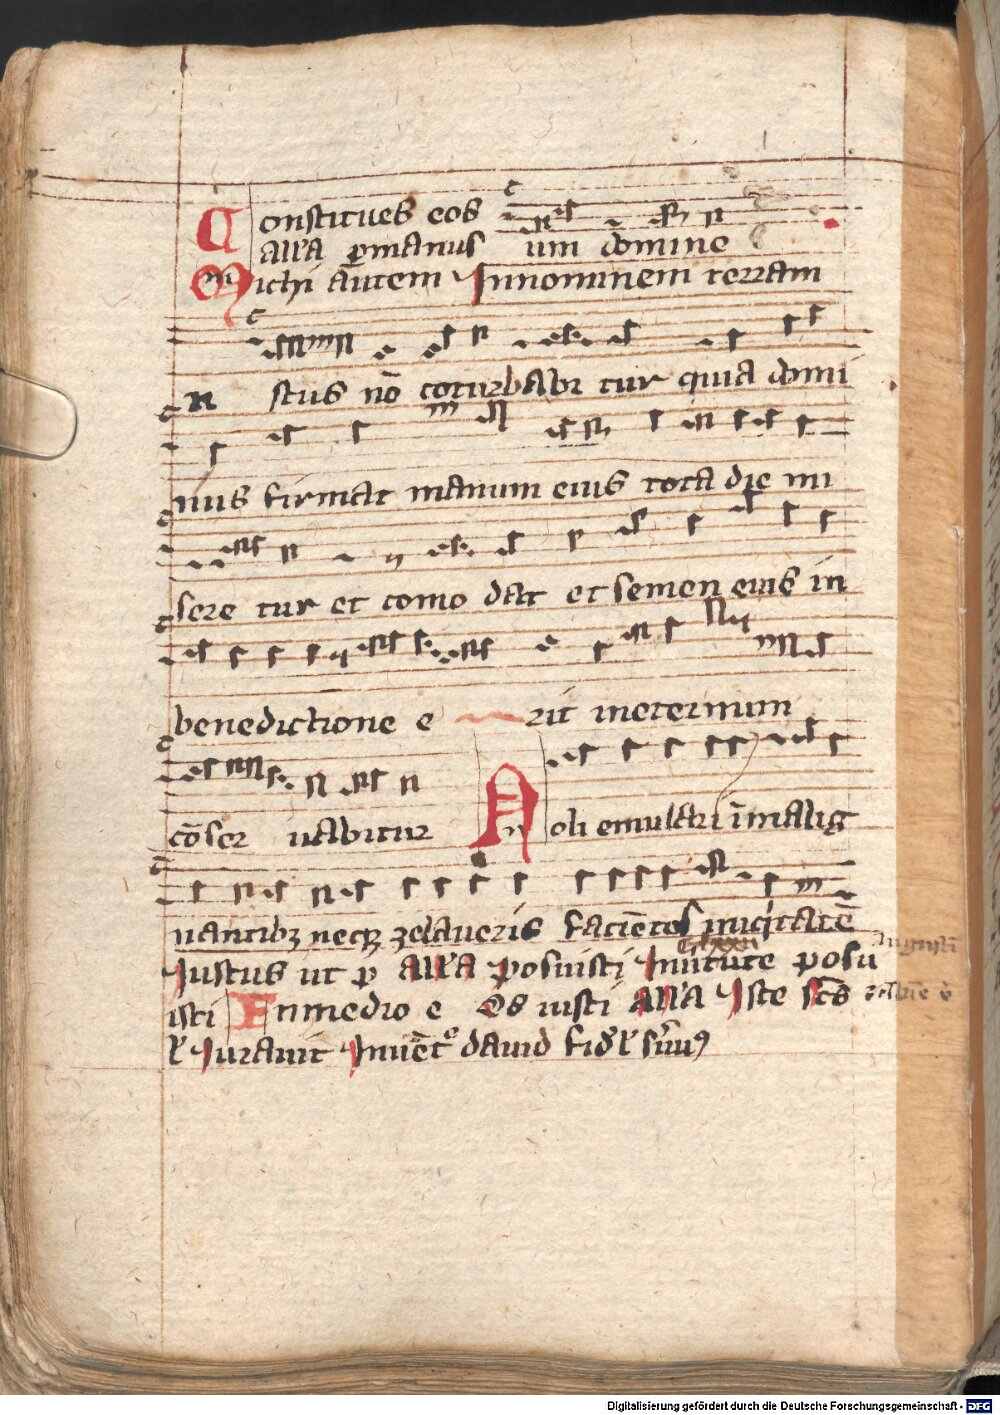 Constitues eos
all'a ꝑmanus um domine
Michi autem Innominem terram
n stus nō coturbabi tur quia domi
nus firmat manum eius tota die mi
sere tur et como dat et semen eius in
benedictione e rit ineternum
cōser uabitur Noli emulari ī malig
nantibꝫ necqꝫ zelaueris faciētes iniq̇tatē
clxxii
Iustus ut p all'a Posuisti Inuirtute posu
isti Inmedio e Os iusti all'a Iste scs
l' Iurauit Inuēt dauid
Digitalisierung gefördert durch die Deutsche Forschungsgemeinschaft - DFG